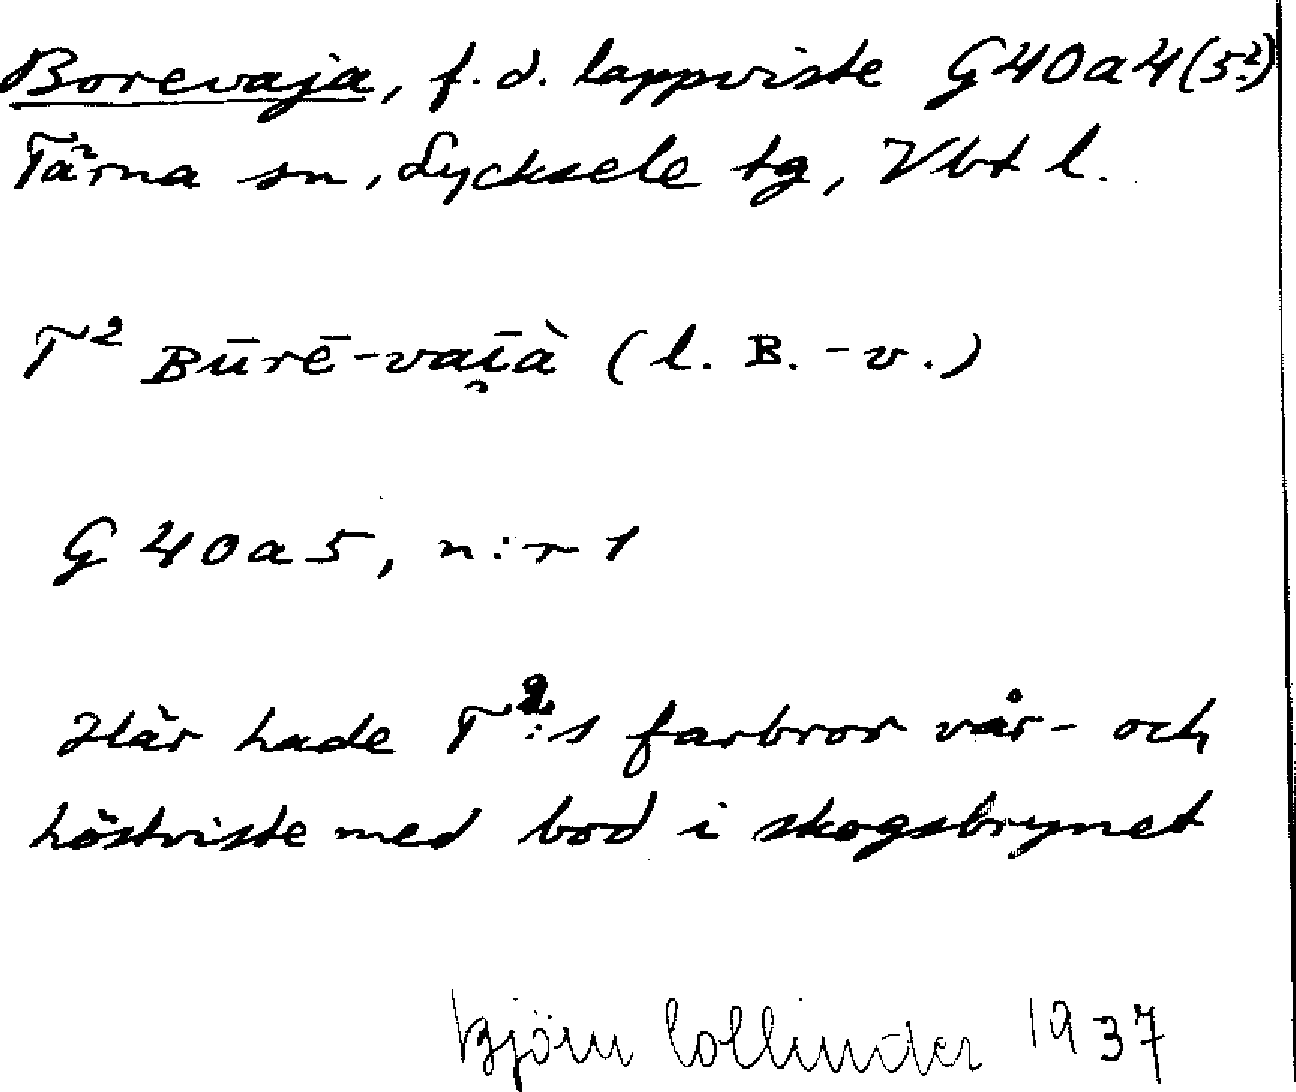 Borevaja, f.d. lappviste G40a4(5?)
Tärna sn, Lycksele tg, Vbt l.
T² Būrē-vai̯à (l. B.-v.)
G 40a5, n:r 1
Här hade T²:s farbror vår- och
höstviste med bod i skogsbrynet
Björn Collinder 1937